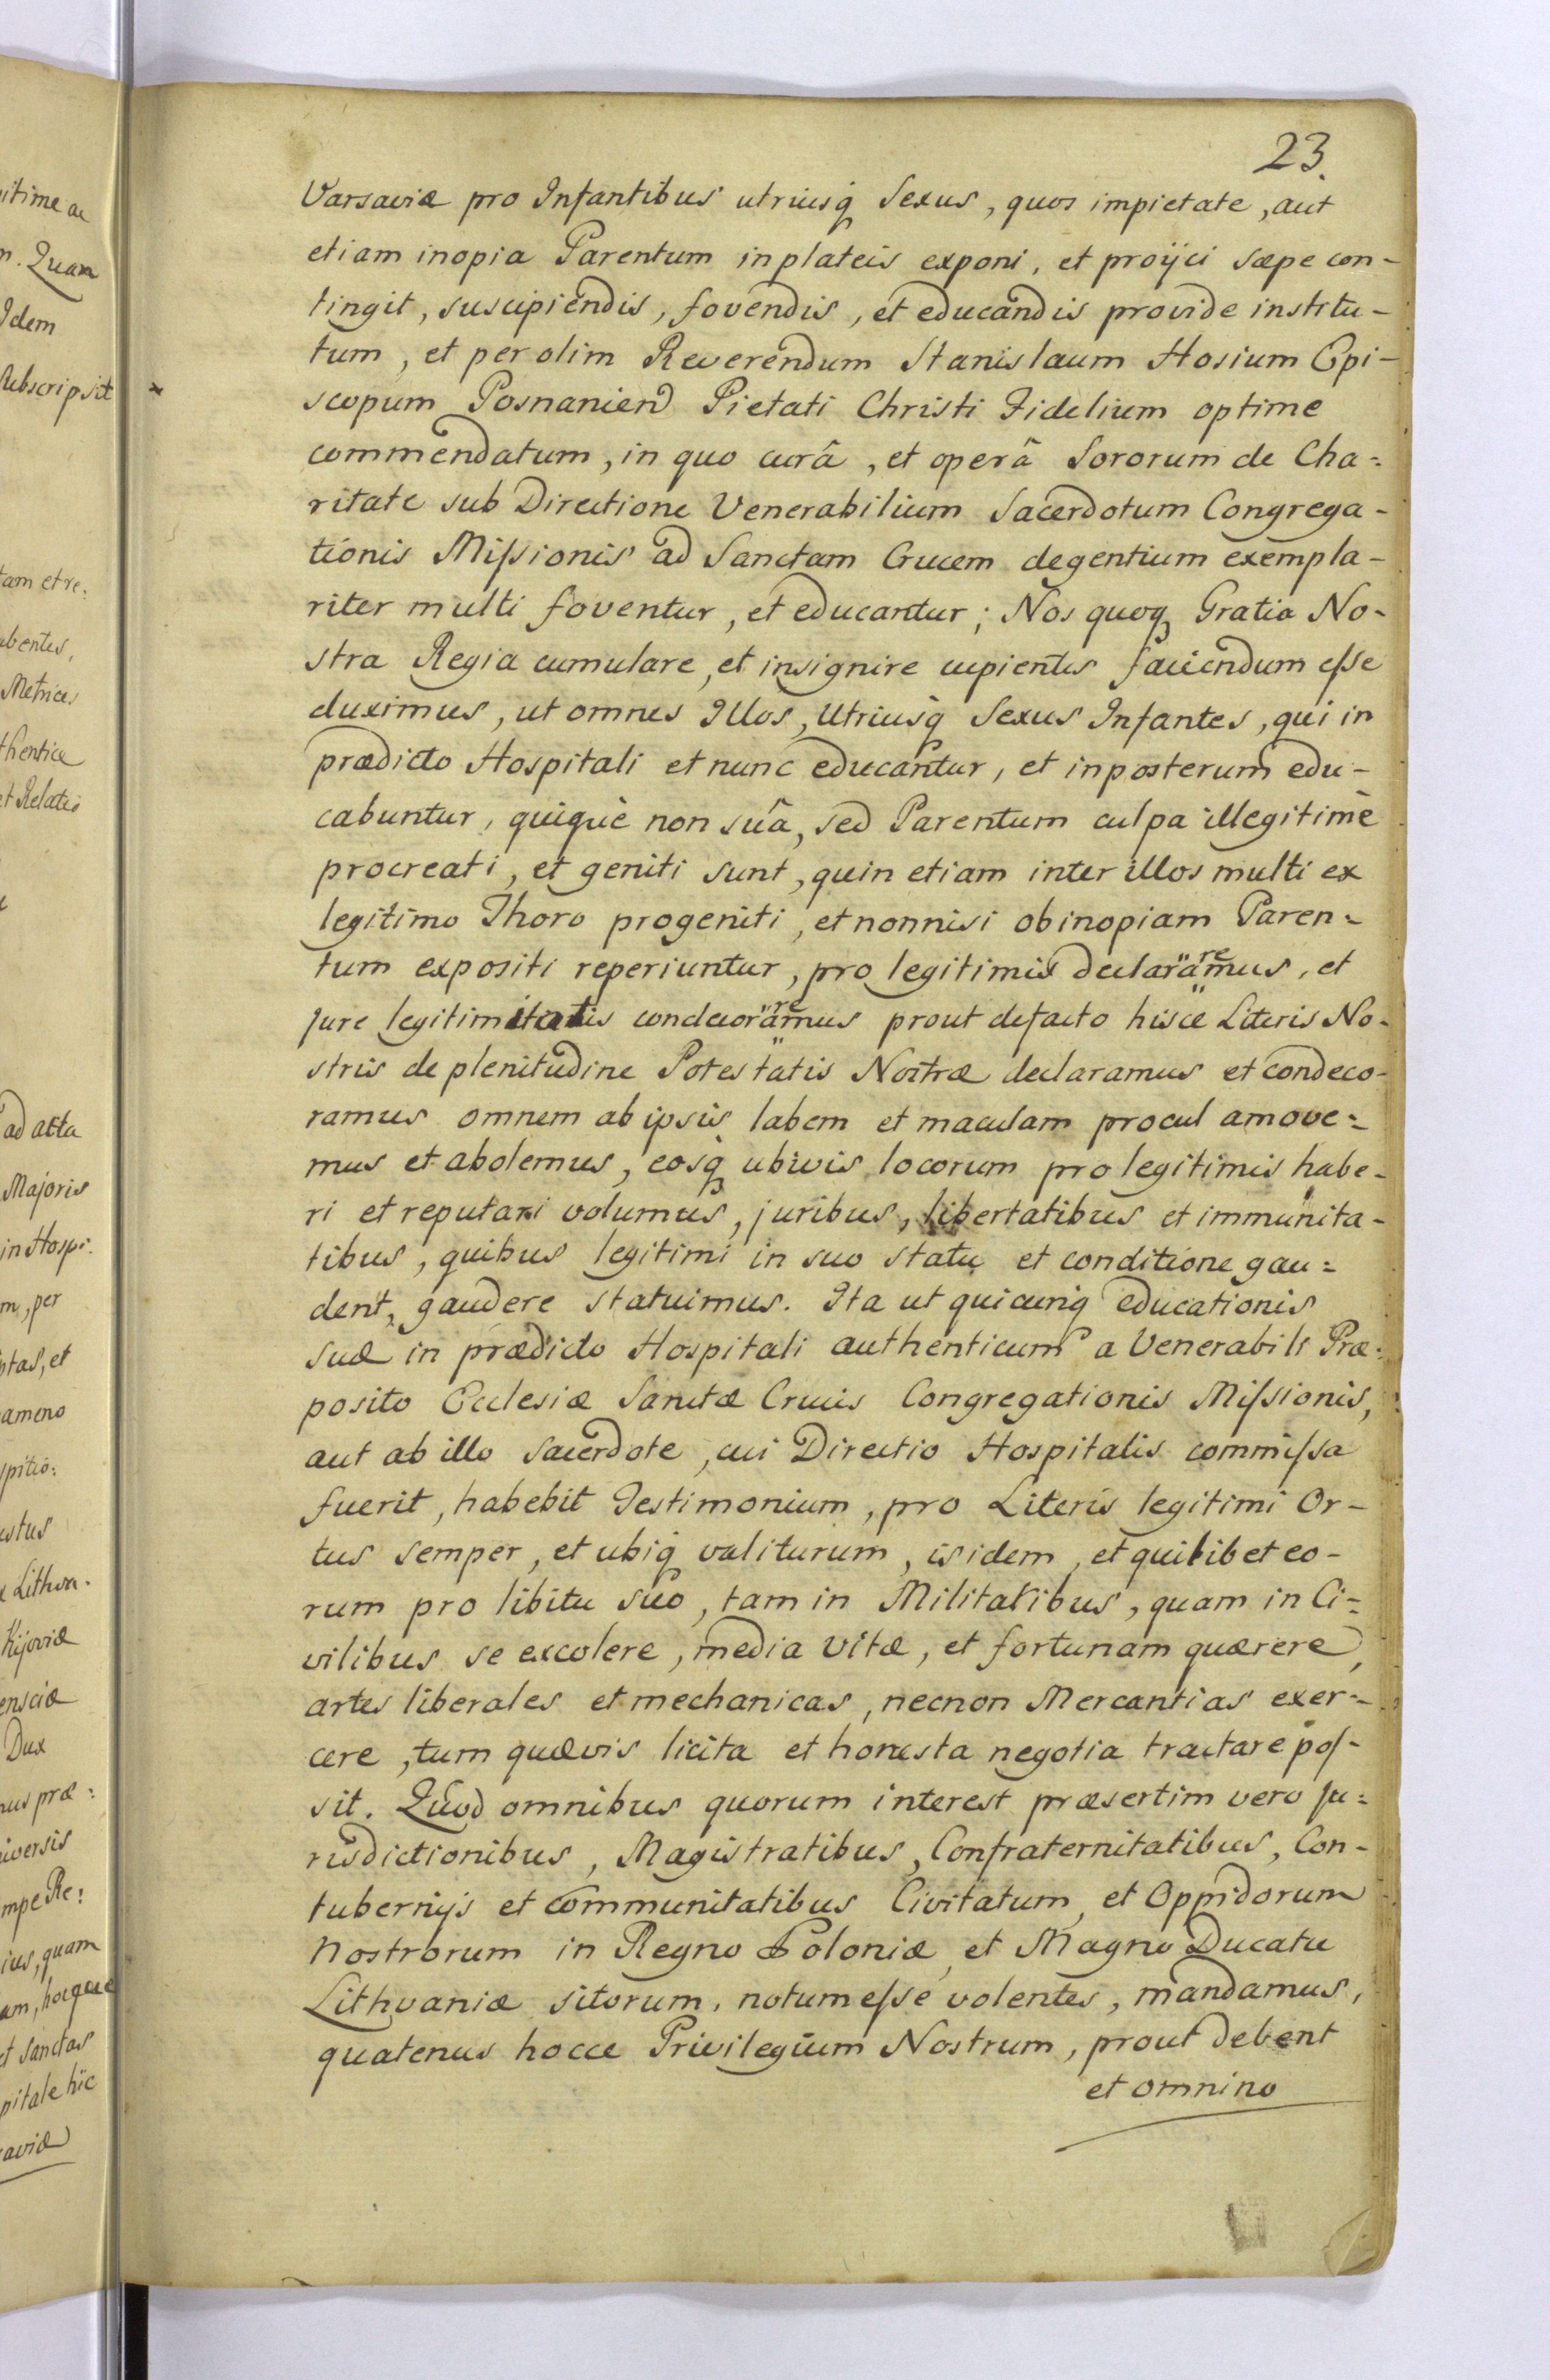 23.
Varsaviæ pro Infantibus utriusq̃ Sexus, quos impietate, aut
etiam inopia Parentum in plateis exponi, et proijci sæpe con-
tingit, suscipiendis, fovendis, et educandis provide institu-
tum, et per olim Reverendum Stanislaum Hosium Epi-
scopum Posnanien̄ Pietati Christi Fidelium optime
commendatum, in quo curâ, et operâ Sororum de Cha=
ritate sub Directione Venerabilium Sacerdotum Congrega-
tionis Miſsionis ad Sanctam Crucem degentium exempla-
riter multi foventur, et educantur; Nos quoq̃ Gratia No-
stra Regia cumulare, et insignire cupientes faciendum eſse
duximus, ut omnes Illos, Utriusq̃ Sexus Infantes, qui in
prædicto Hospitali et nunc educantur, et inposterum edu-
cabuntur, quiquè non suâ, sed Parentum culpa illegitimè
procreati, et geniti sunt, quin etiam inter illos multi ex
legitimo Thoro progeniti, et nonnisi ob inopiam Paren=
tum expositi reperiuntur, pro legitimis declararemus, et
jure legitimitatis condecoraremus prout defacto hisce Literis No-
stris de plenitudine Potestatis Nostræ declaramus et condeco-
ramus omnem ab ipsis labem et maculam procul amove=
mus et abolemus, eosq̃ ubivis locorum pro legitimis habe-
ri et reputari volumus, juribus, libertatibus et immunita-
tibus, quibus legitimi in suo statu et conditione gau=
dent, gaudere statuimus. Ita ut quicunq̃ educationis
suæ in prædicto Hospitali authenticum a Venerabili Præ=
posito Ecclesiæ Sanctæ Crucis Congregationis Miſsionis,
aut ab illo Sacerdote, cui Directio Hospitalis commiſsa
fuerit, habebit Testimonium, pro Literis legitimi Or-
tus semper, et ubiq̃ valiturum, is idem, et quilibet eo-
rum pro libitu suo, tam in Militaribus, quam in Ci=
vilibus se excolere, media vitæ, et fortunam quærere,
artes liberales et mechanicas, necnon Mercantias exer=
cere, tum quævis licita et honesta negotia tractare poſ-
sit. Quod omnibus quorum interest præsertim vero Ju=
risdictionibus, Magistratibus, Confraternitatibus, Con-
tubernijs et communitatibus Civitatum, et Oppidorum
Nostrorum in Regno Poloniæ, et Magno Ducatu
Lithvaniæ sitorum, notum eſse volentes, mandamus,
quatenus hocce Privilegium Nostrum, prout debent
et omnino
itime ac
Quam
Idem
Subscripsit
tam et re:
Metrices
thentice
et Relatis
ad acta
Majoris
in Hospi:
m, per
ptas, et
Lithva:
Kijoviæ
Dux
us præ:
iversis
mpe Re:
ius, quam
am, hocque
et Sanctas
pitale hic
aviæ